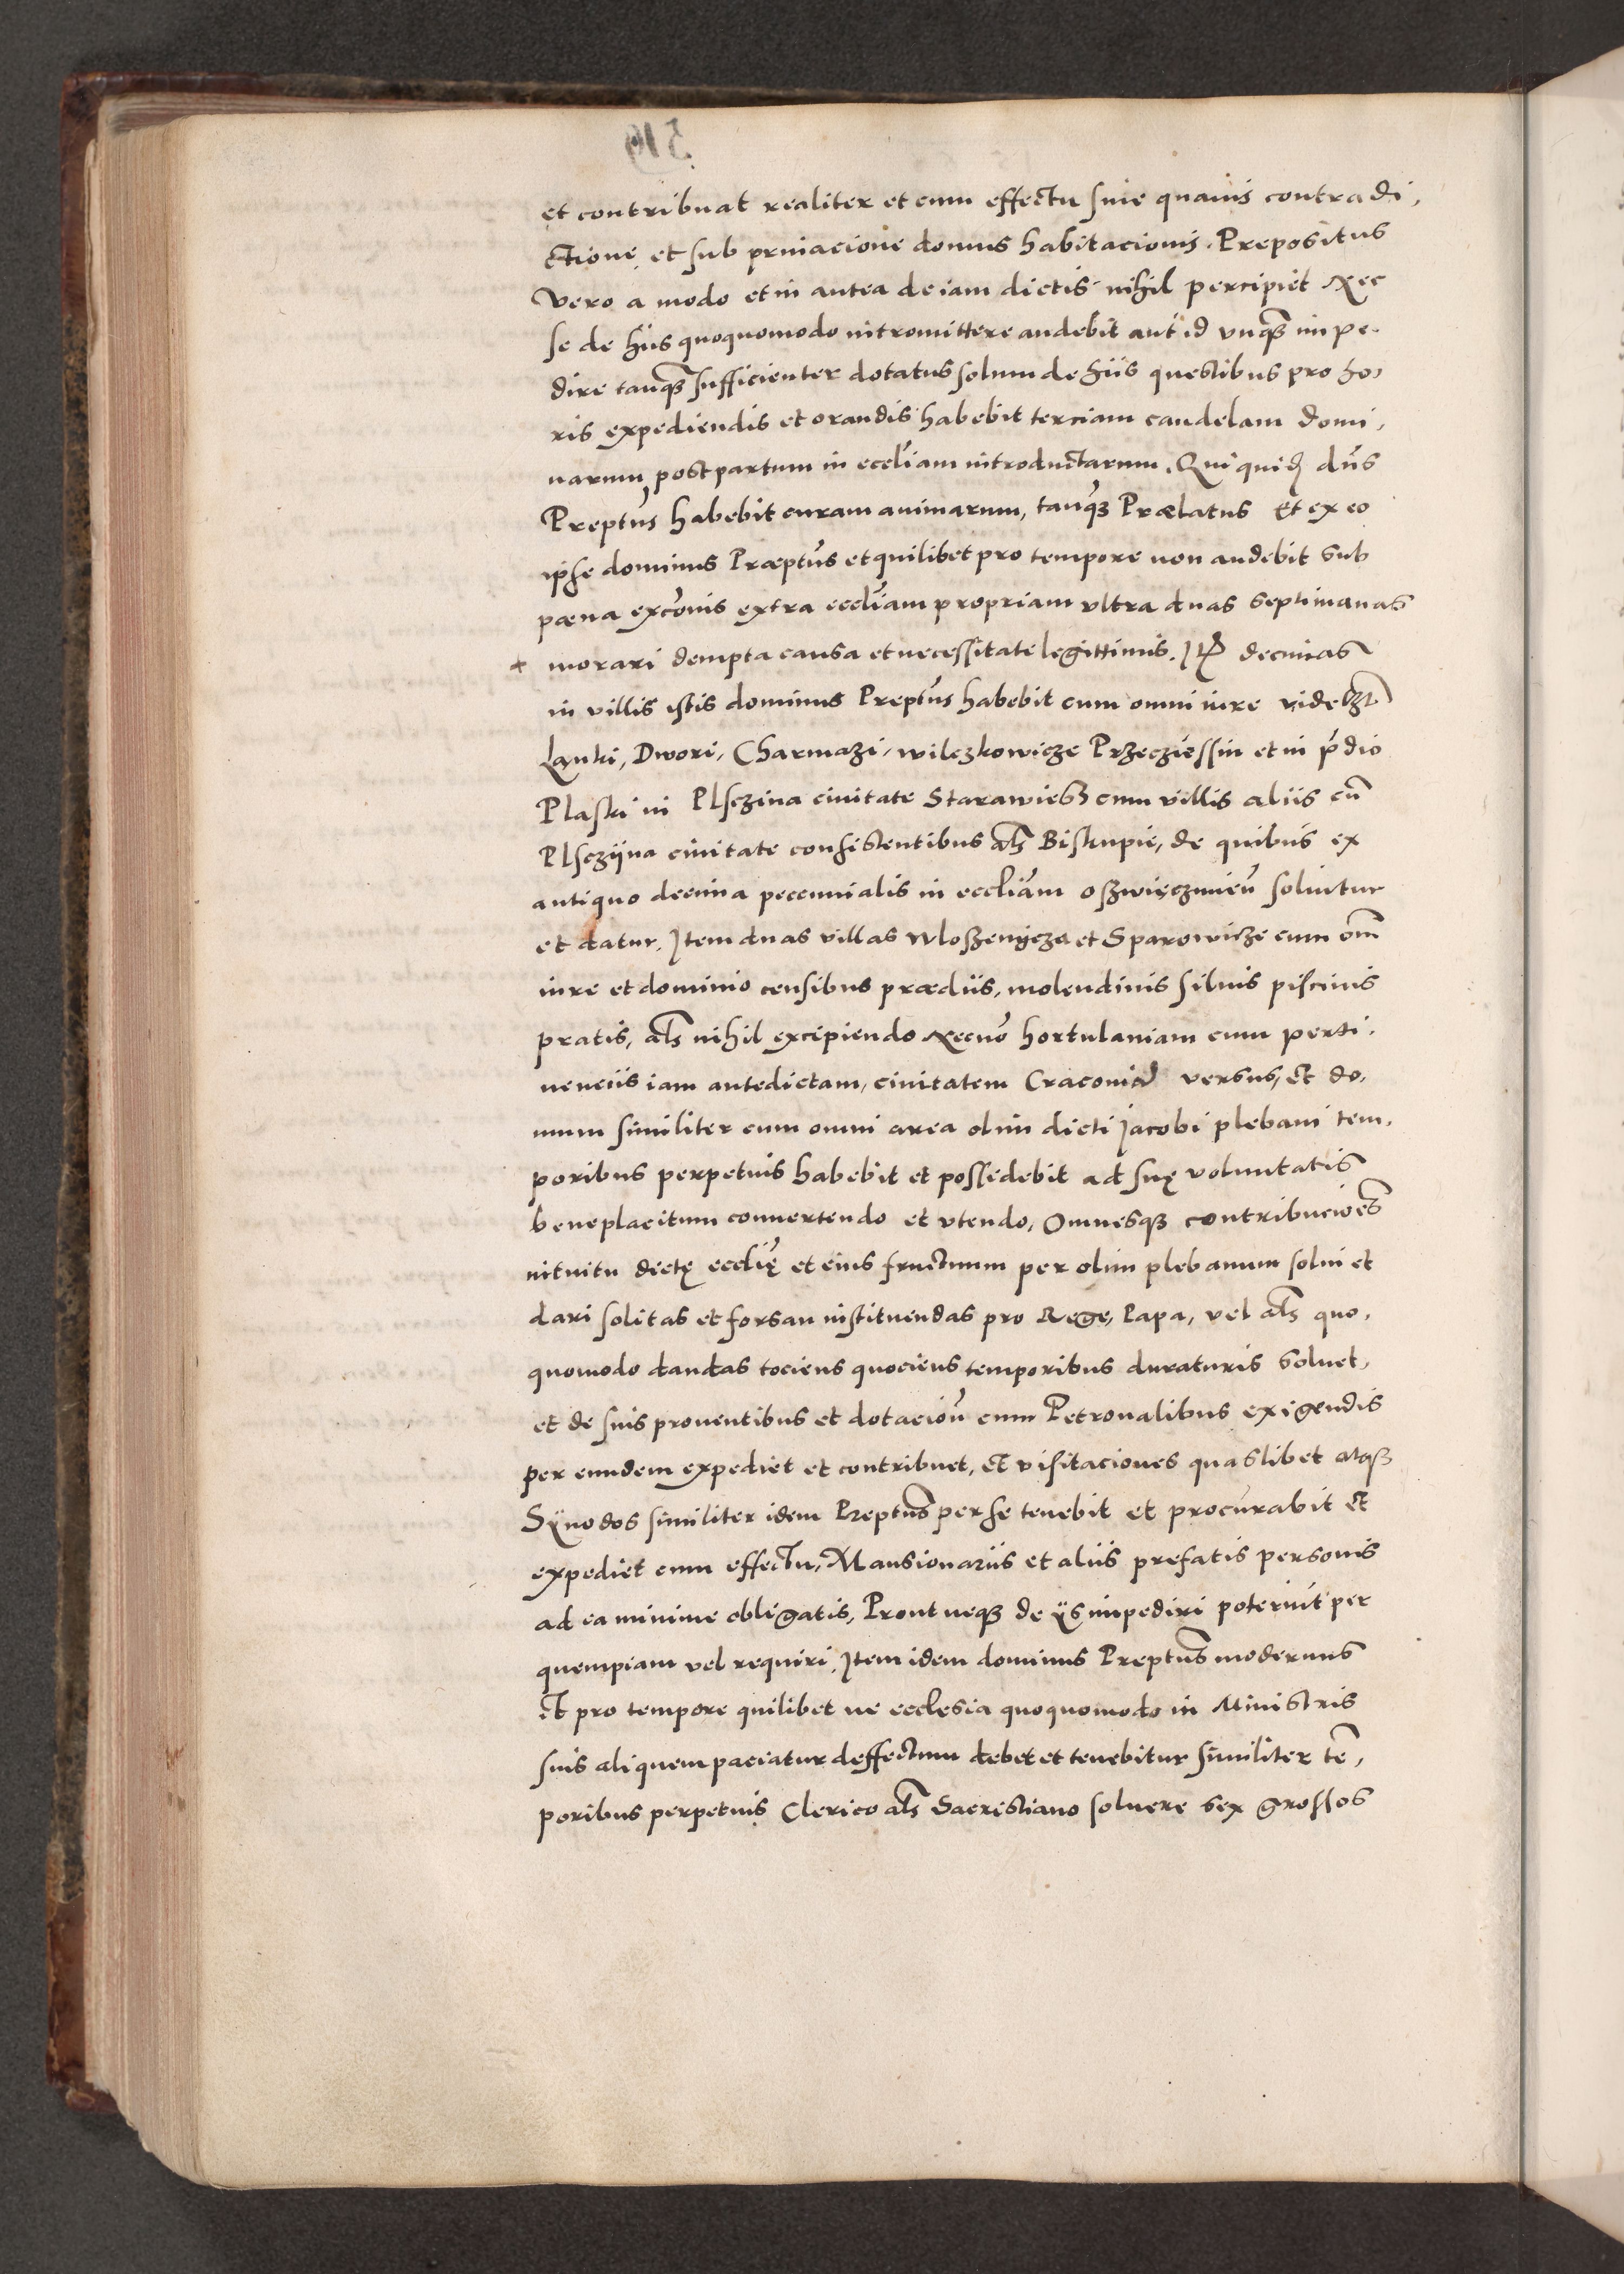 et contribuat realiter et cum effectu sine quauis contradi,
ctione, et sub priuacione domus habitacionis. Prepositus
Vero a modo et in antea de iam dictis nihil percipiet Nec
se de hiis quoquomodo intromittere audebit aut id vnq̃ȝ impe-
dire tanq̃ȝ sufficienter dotatus solum de hiis questibus pro ho,
ris expediendis et orandis habebit terciam candelam domi,
narum post partum in ecclĩam introductarum. Qui quid dñs
Preptũs habebit curam animarum, tanq̃ȝ Prælatus Et ex eo
ipse dominus Præptũs et quilibet pro tempore non audebit sub
pæna excõnis extra ecclĩam propriam vltra duas septimanas
+ morari dempta causa et necessitate legittimis. Itȩ decimas
in villis istis dominus Preptũs habebit cum omni iure videlȝt
Lanki, Dwori, Charmazi, wilczkowicze Przecziessin et in p̃dio
Plaski in Plsczina ciuitate Starawiess cum villis aliis cũ
Plscziina ciuitate consistentibus al̃s Biskupie, de quibus ex
antiquo decima pecunialis in ecclĩam oszwięczimeñ soluitur
et datur. Item duas villas Wloszenycze et Sparowicze cum om̃
iure et dominio censibus prædiis, molendinis siluis piscinis
pratis, al̃s nihil excipiendo Necnõ hortulaniam cum perti,
nenciis iam antedictam, ciuitatem Cracouia versus, et do,
mum similiter cum omni area olim dicti Jacobi plebani tem,
poribus perpetuis habebit et possidebit ad suę voluntatis
beneplacitum conuertendo et vtendo, Omnesqȝ contribucioẽs
intuitu dictę ecclĩę et eius fructuum per olim plebanum solui et
dari solitas et forsan instituendas pro Rege, Papa, vel al̃s quo,
quomodo dandas tociens quociens temporibus duraturis soluet,
et de suis prouentibus et dotacioñ cum Petronalibus exigendis
per eundem expediet et contribuet, et visitaciones quaslibet atqȝ
Sÿnodos similiter idem Preptũs per se tenebit et procurabit et
expediet cum effectu, Mansionariis et aliis prefatis personis
ad ea minime obligatis, Prout neqȝ de ijs impediri poterint per
quempiam vel requiri. Item idem dominus Preptũs modernus
et pro tempore quilibet ne ecclesia quoquomodo in Ministris
suis aliquem paciatur deffectum debet et tenebitur similiter tẽ,
poribus perpetuis Clerico al̃s Sacristiano soluere sex grossos